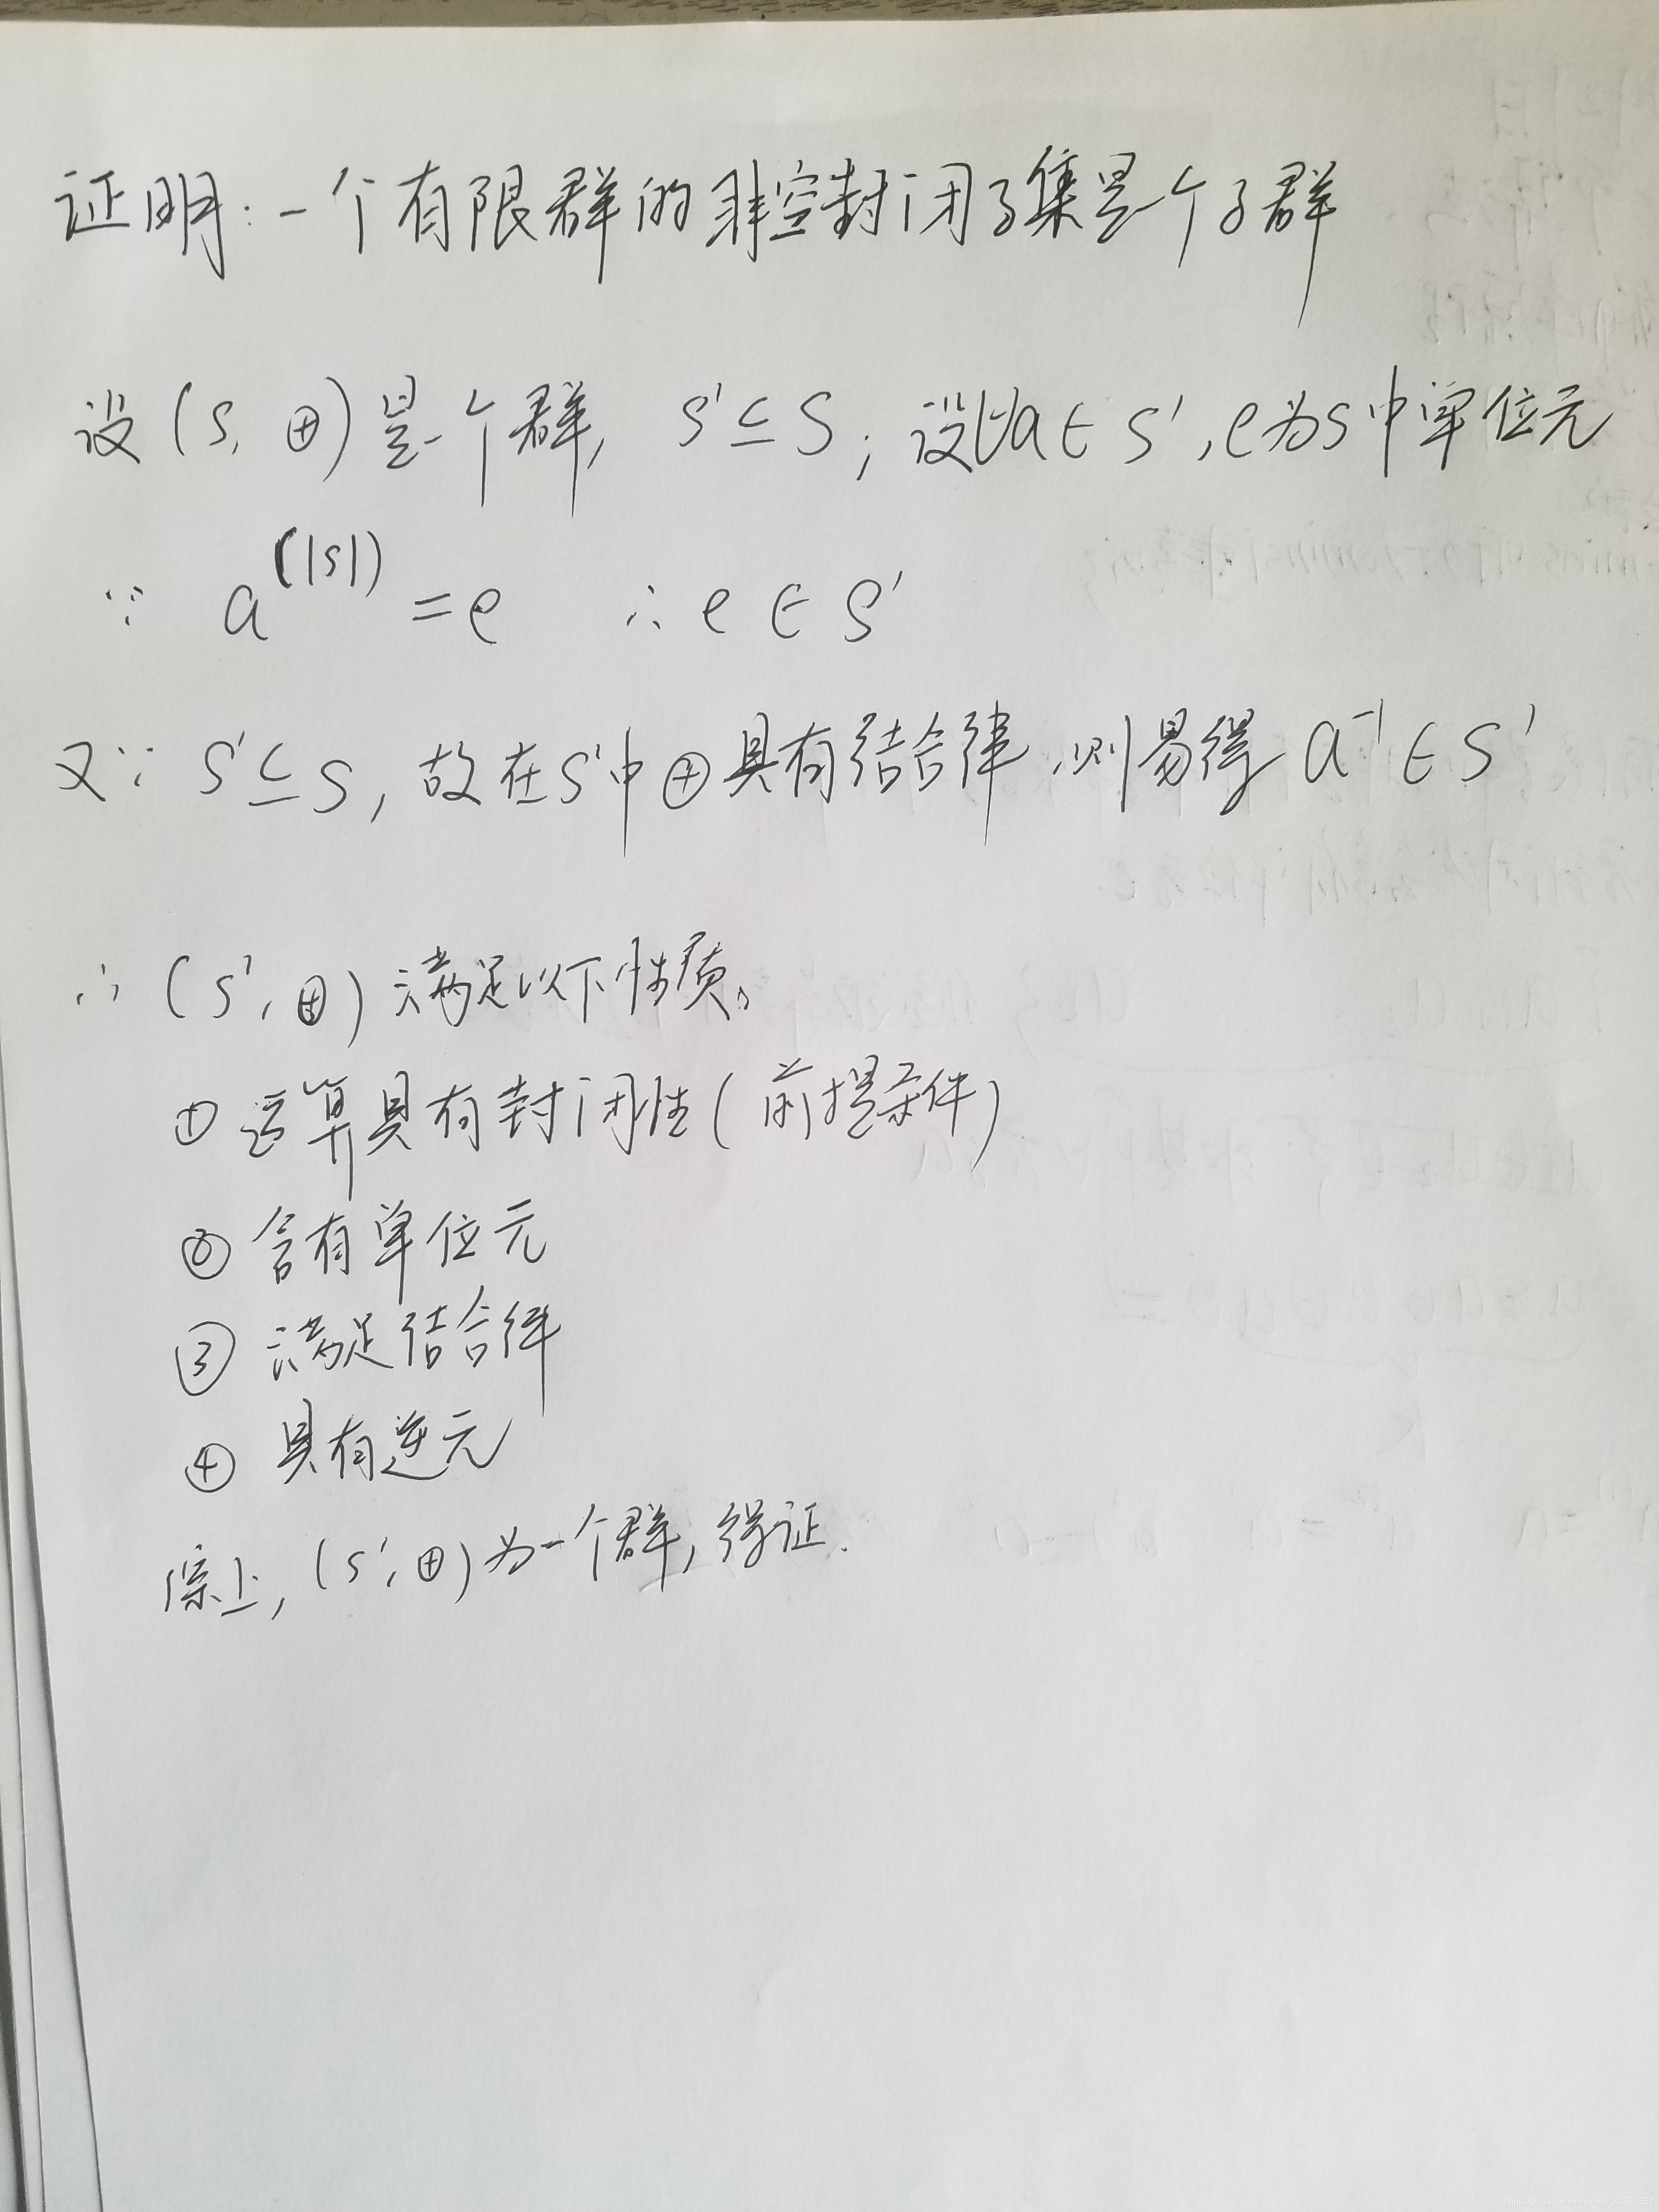 证明:一个有限群的非空封闭子集是一个子群
设(S, ⊕)是一个群, S'⊆S; 设∀a∈S', e为S中单位元
∵ a^(|S|) = e ∴ e∈S'
又∵ S'⊆S, 故在S'中⊕具有结合律, 则易得 a⁻¹∈S'
∴ (S', ⊕) 满足以下性质。
① 运算具有封闭性(前提条件)
② 含有单位元
③ 满足结合律
④ 具有逆元
综上, (S', ⊕)为一个群, 得证.